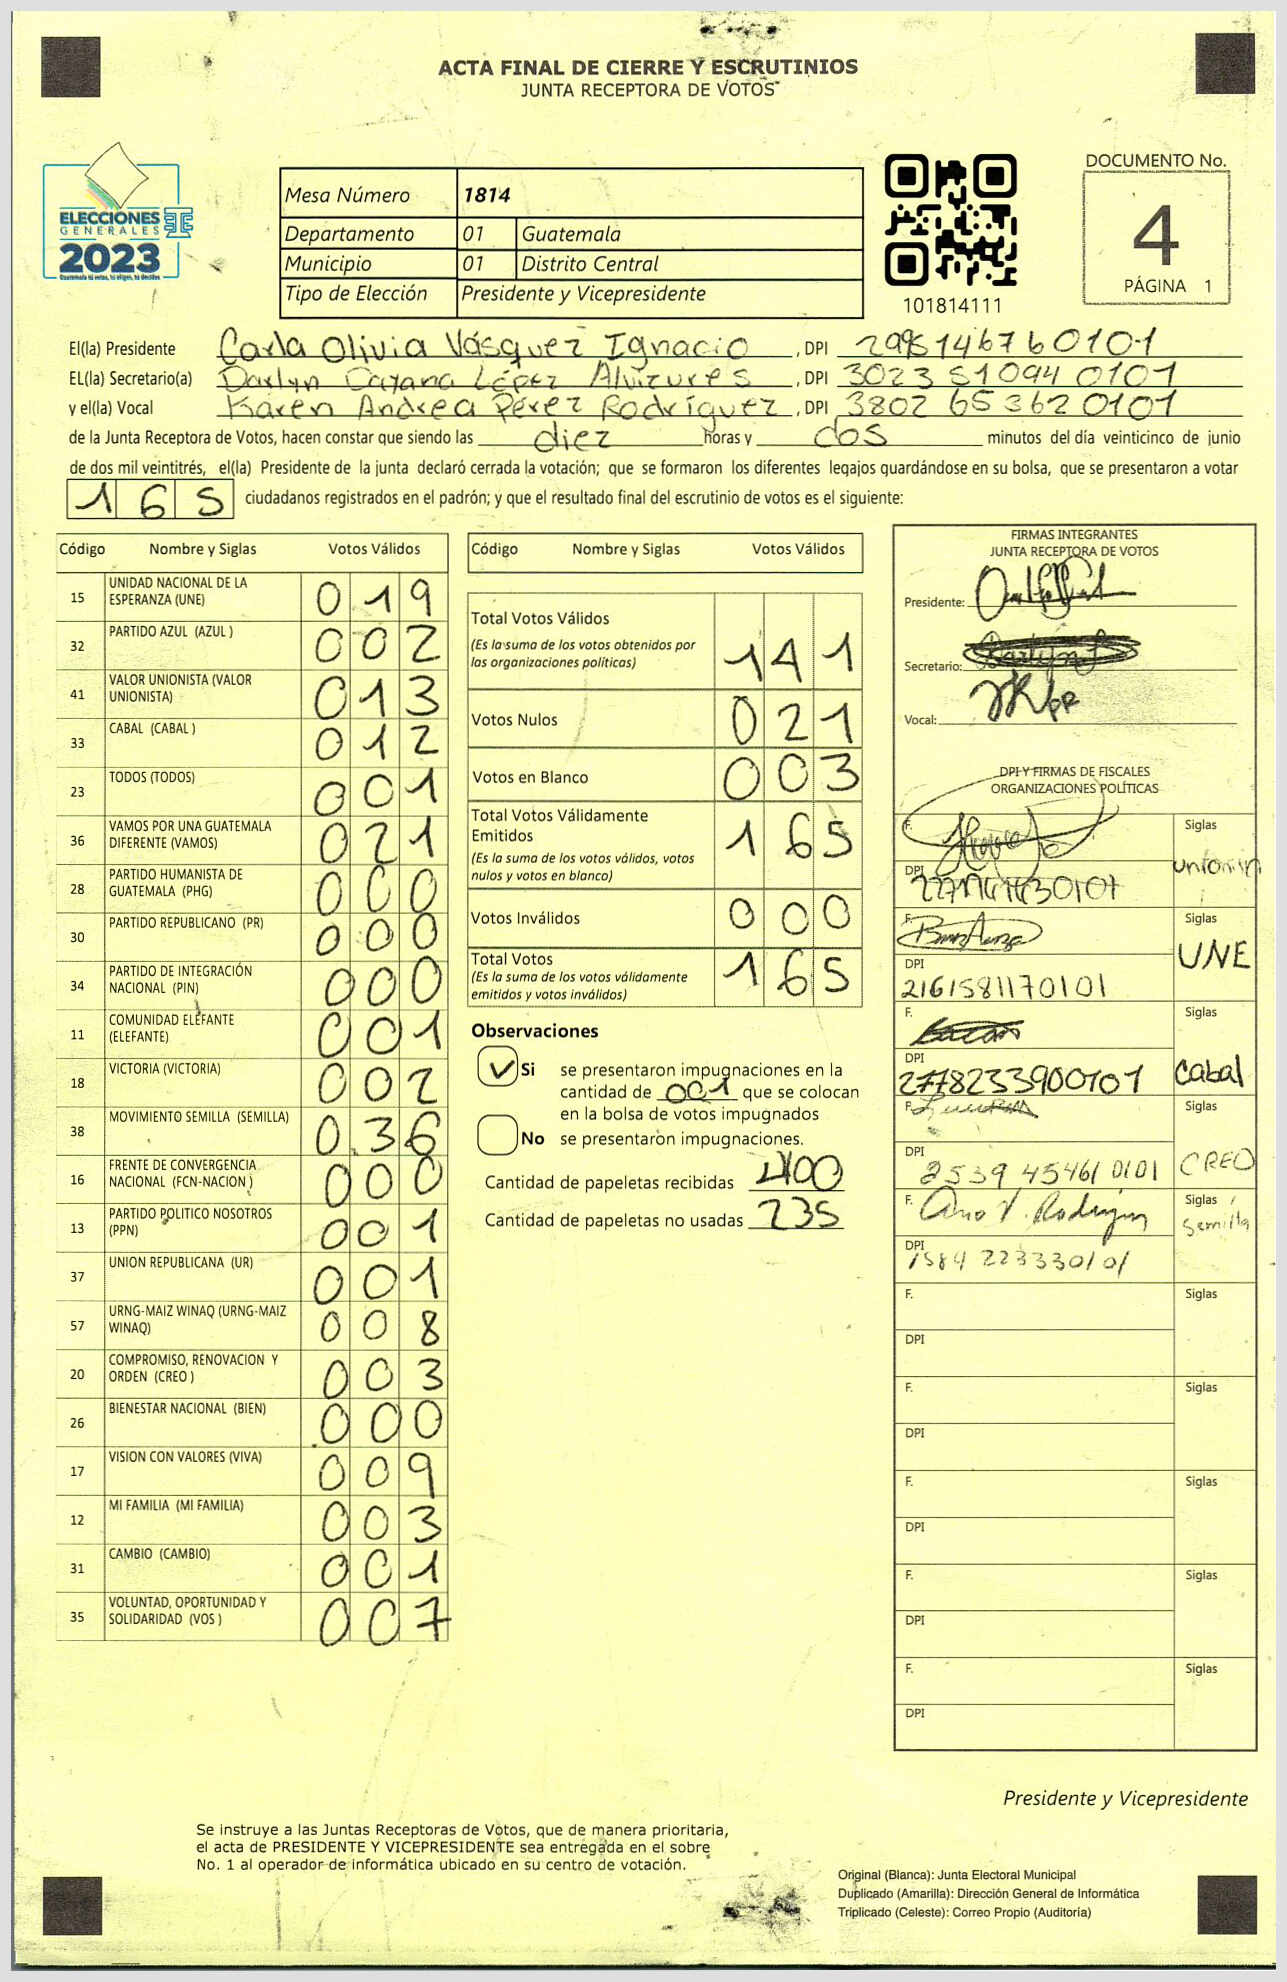 ACTA FINAL DE CIERRE Y ESCRUTINIOS
JUNTA RECEPTORA DE VOTOS
ELECCIONES
GENERALES
2023
Guatemala tú votas, tú eliges, tú decides
Mesa Número 1814
Departamento 01 Guatemala
Municipio 01 Distrito Central
Tipo de Elección Presidente y Vicepresidente
101814111
DOCUMENTO No.
4
PÁGINA 1
El(la) Presidente Carla Olivia Vásquez Ignacio , DPI
EL(la) Secretario(a) Darlyn Dayana López Alvizures , DPI 3023 51094 0101
y el(la) Vocal Karen Andrea Pérez Rodríguez , DPI 3802 65362 0101
de la Junta Receptora de Votos, hacen constar que siendo las diez horas y dos minutos del día veinticinco de junio
de dos mil veintitrés, el(la) Presidente de la junta declaró cerrada la votación; que se formaron los diferentes legajos guardándose en su bolsa, que se presentaron a votar
165 ciudadanos registrados en el padrón; y que el resultado final del escrutinio de votos es el siguiente:
Código Nombre y Siglas Votos Válidos
15 UNIDAD NACIONAL DE LA ESPERANZA (UNE) 019
32 PARTIDO AZUL (AZUL ) 002
41 VALOR UNIONISTA (VALOR UNIONISTA) 013
33 CABAL (CABAL ) 012
23 TODOS (TODOS) 001
36 VAMOS POR UNA GUATEMALA DIFERENTE (VAMOS) 021
28 PARTIDO HUMANISTA DE GUATEMALA (PHG) 000
30 PARTIDO REPUBLICANO (PR) 000
34 PARTIDO DE INTEGRACIÓN NACIONAL (PIN) 000
11 COMUNIDAD ELEFANTE (ELEFANTE) 001
18 VICTORIA (VICTORIA) 002
38 MOVIMIENTO SEMILLA (SEMILLA) 036
16 FRENTE DE CONVERGENCIA NACIONAL (FCN-NACION ) 000
13 PARTIDO POLITICO NOSOTROS (PPN) 001
37 UNION REPUBLICANA (UR) 001
57 URNG-MAIZ WINAQ (URNG-MAIZ WINAQ) 008
20 COMPROMISO, RENOVACION Y ORDEN (CREO ) 003
26 BIENESTAR NACIONAL (BIEN) 000
17 VISION CON VALORES (VIVA) 009
12 MI FAMILIA (MI FAMILIA) 003
31 CAMBIO (CAMBIO) 001
35 VOLUNTAD, OPORTUNIDAD Y SOLIDARIDAD (VOS ) 007
Código Nombre y Siglas Votos Válidos
Total Votos Válidos 141
(Es la suma de los votos obtenidos por
las organizaciones políticas)
Votos Nulos 021
Votos en Blanco 003
Total Votos Válidamente
Emitidos 165
(Es la suma de los votos válidos, votos
nulos y votos en blanco)
Votos Inválidos 000
Total Votos 165
(Es la suma de los votos válidamente
emitidos y votos inválidos)
Observaciones
Si se presentaron impugnaciones en la
cantidad de 001 que se colocan
en la bolsa de votos impugnados
No se presentaron impugnaciones.
Cantidad de papeletas recibidas 400
Cantidad de papeletas no usadas 235
FIRMAS INTEGRANTES
JUNTA RECEPTORA DE VOTOS
Presidente:
Secretario:
Vocal:
DPI Y FIRMAS DE FISCALES
ORGANIZACIONES POLÍTICAS
F. Siglas
DPI
F. Siglas
UNE
DPI
2161581170101
F. Siglas
DPI Cabal
2778233900101
F. Siglas
DPI CREO
2539 45461 0101
F. Siglas
Semilla
DPI
1584 22333 0101
F. Siglas
DPI
F. Siglas
DPI
F. Siglas
DPI
F. Siglas
DPI
F. Siglas
DPI
Presidente y Vicepresidente
Se instruye a las Juntas Receptoras de Votos, que de manera prioritaria,
el acta de PRESIDENTE Y VICEPRESIDENTE sea entregada en el sobre
No. 1 al operador de informática ubicado en su centro de votación.
Original (Blanca): Junta Electoral Municipal
Duplicado (Amarilla): Dirección General de Informática
Triplicado (Celeste): Correo Propio (Auditoría)